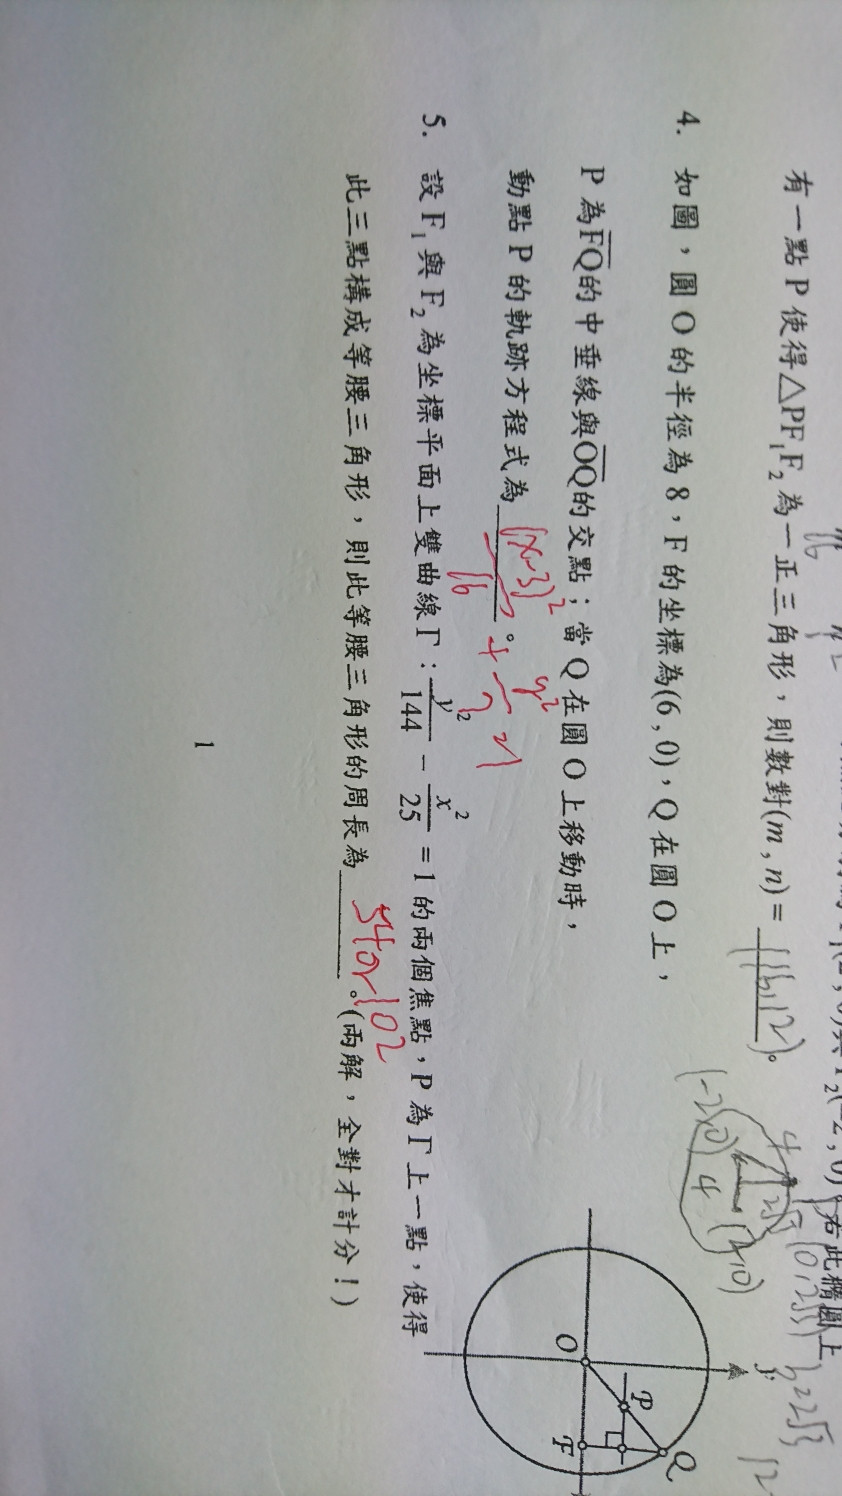 有一點 P 使得△PF₁F₂ 為一正三角形，則數對(m , n) = (16,12)。
4. 如圖，圓 O 的半徑為 8，F 的坐標為(6 , 0)，Q 在圓 O 上，
P 為FQ的中垂線與OQ的交點；當 Q 在圓 O 上移動時，
動點 P 的軌跡方程式為 (x-3)²/16 + y²/7 = 1 。
5. 設 F₁ 與 F₂ 為坐標平面上雙曲線 Γ : y²/144 − x²/25 = 1 的兩個焦點，P 為 Γ 上一點，使得
此三點構成等腰三角形，則此等腰三角形的周長為 54 or 102 。(兩解，全對才計分！)
(-2,0) 4 (2,0)
4 2√3 (0,2√3) b=2√3
y
O P Q F
1